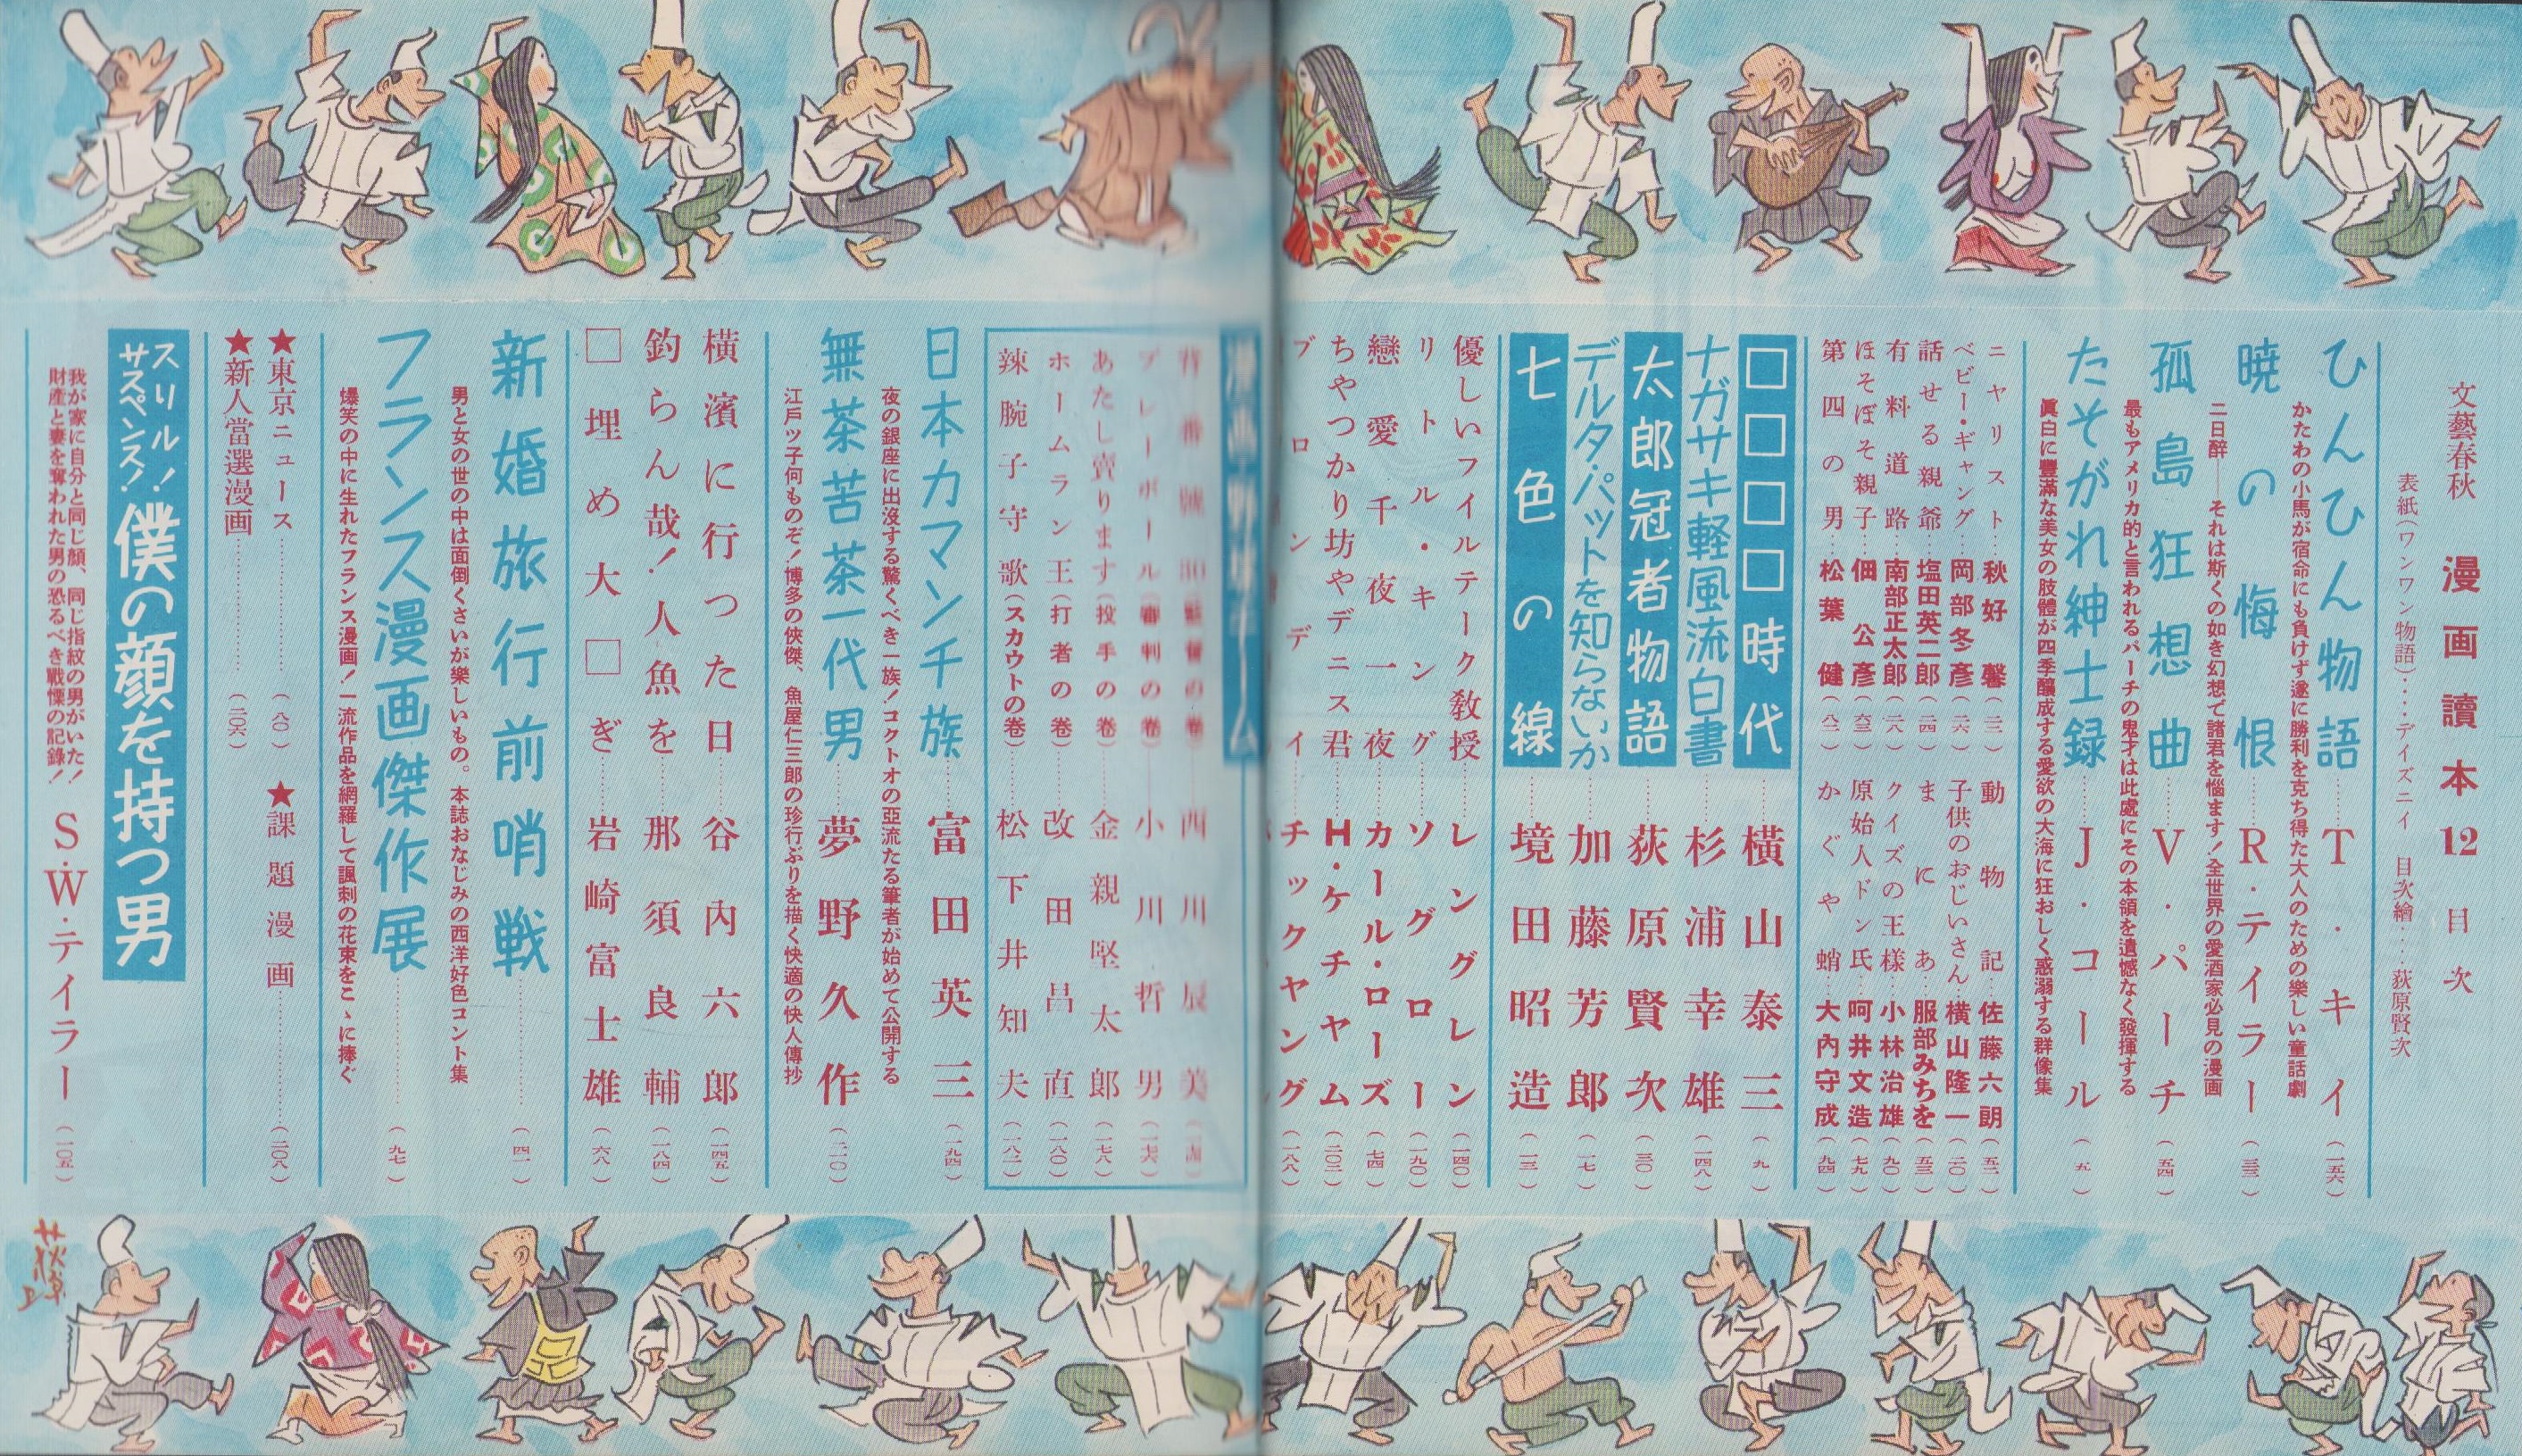 文藝春秋 漫画讀本 12 目次
表紙(ワンワン物語)‥‥デイズニイ 目次繪‥‥荻原賢次
ひんひん物語……T・キイ(一五六)
かたわの小馬が宿命にも負けず遂に勝利を克ち得た大人のための樂しい童話劇
暁の悔恨……R・テイラー
二日醉――それは斯くの如き幻想で諸君を惱ます!全世界の愛酒家必見の漫画
孤島狂想曲……V・パーチ(五四)
最もアメリカ的と言われるパーチの鬼才は此處にその本領を遺憾なく發揮する
たそがれ紳士録……J・コール(五)
眞白に豐滿な美女の肢體が四季釀成する愛欲の大海に狂おしく惑溺する群像集
ニヤリスト‥秋好馨
動物記‥佐藤六朗(五二)
ベビー・ギャング‥岡部冬彥(二六)
子供のおじいさん‥横山隆一(二〇)
話せる親爺‥塩田英二郎(二四)
まにあ‥服部みちを(五三)
有料道路‥南部正太郎(二八)
クイズの王樣‥小林治雄(九〇)
ほそぼそ親子‥佃公彥(六三)
原始人ドン氏‥呵井文造(七九)
第四の男‥松葉健(八二)
かぐや蛸‥大內守成(九四)
□□□□時代……横山泰三(九)
ナガサキ軽風流白書……杉浦幸雄(一四八)
太郎冠者物語……荻原賢次(三〇)
デルタ・パットを知らないか……加藤芳郎(一七)
七色の線……境田昭造(一三)
優しいフイルテーク敎授……レングレン(一四〇)
リトル・キング……ソグロー(一九〇)
戀愛千夜一夜……カール・ローズ(七四)
ちやつかり坊やデニス君……H・ケチヤム(一〇二)
ブロンデイ……チックヤング(一八八)
西川辰美
プレーボール(審判の巻)……小川哲男(一七六)
あたし賣ります(投手の巻)……金親堅太郎(一七八)
ホームラン王(打者の巻)……改田昌直(一八〇)
辣腕子守歌(スカウトの巻)……松下井知夫(一八二)
日本カマンチ族……富田英三(一九四)
夜の銀座に出沒する驚くべき一族!コクトオの亞流たる筆者が始めて公開する
無茶苦茶一代男……夢野久作(二一〇)
江戶ッ子何ものぞ!博多の俠傑、魚屋仁三郎の珍行ぶりを描く快適の快人傳抄
横濱に行つた日……谷內六郎(一四五)
釣らん哉!人魚を……那須良輔(一八四)
□埋め大□ぎ……岩崎富士雄(六八)
新婚旅行前哨戦……(四一)
男と女の世の中は面倒くさいが樂しいもの。本誌おなじみの西洋好色コント集
フランス漫画傑作展……(九七)
爆笑の中に生れたフランス漫画!一流作品を網羅して諷刺の花束をこゝに捧ぐ
★東京ニュース……(八〇) ★課題漫画……(二〇八)
★新人當選漫画……(二〇六)
スリル!サスペンス!僕の顔を持つ男
我が家に自分と同じ顏、同じ指紋の男がいた!
財產と妻を奪われた男の恐るべき戰慄の記錄!
S・W・テイラー(一〇五)